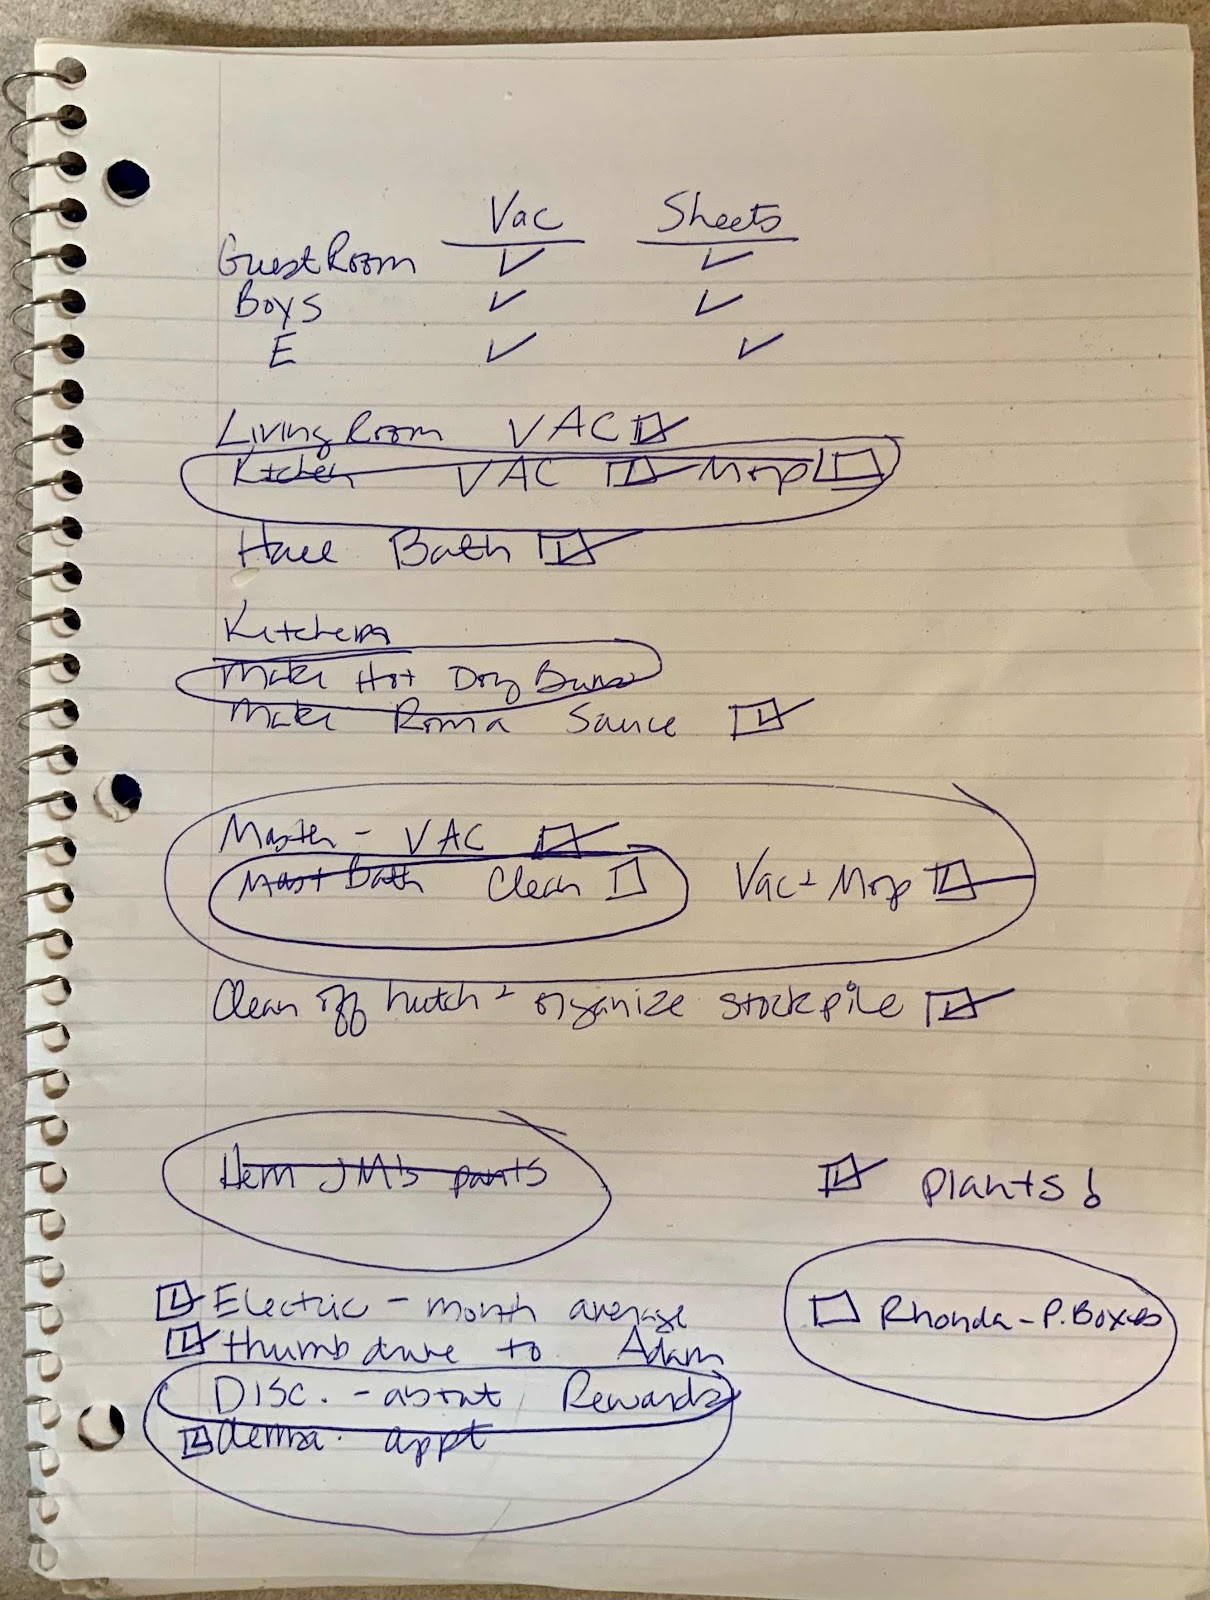 Vac Sheets
Guest Room ✓ ✓
Boys ✓ ✓
E ✓ ✓
Living Room VAC ☑
Kitchen VAC ☑ Mop ☐
Hall Bath ☑
Kitchen
Make Hot Dog Buns
Make Roma Sauce ☑
Master - VAC ☑
Mast Bath Clean ☐ Vac + Mop ☑
Clean off hutch + organize stockpile ☑
Hem JM's pants
☑ plants!
☑ Electric - month average
☐ Rhonda - P. Boxes
☑ thumb drive to Adam
DISC. - about Rewards
☑ derma. appt